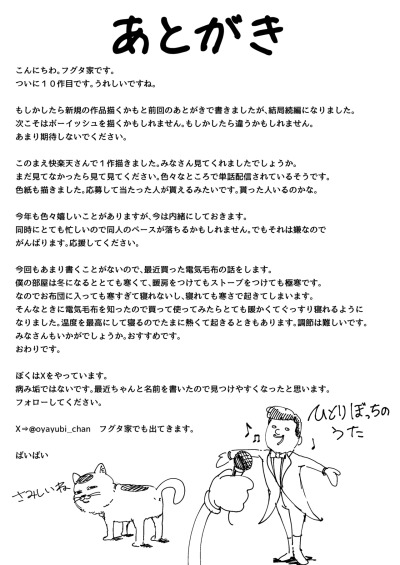 あとがき
こんにちわ。フグタ家です。
ついに１０作目です。うれしいですね。
もしかしたら新規の作品描くかもと前回のあとがきで書きましたが、結局続編になりました。
次こそはボーイッシュを描くかもしれません。もしかしたら違うかもしれません。
あまり期待しないでください。
このまえ快楽天さんで１作描きました。みなさん見てくれましたでしょうか。
まだ見てなかったら見て見てください。色々なところで単話配信されているそうです。
色紙も描きました。応募して当たった人が貰えるみたいです。貰った人いるのかな。
今年も色々嬉しいことがありますが、今は内緒にしておきます。
同時にとても忙しいので同人のペースが落ちるかもしれません。でもそれは嫌なので
がんばります。応援してください。
今回もあまり書くことがないので、最近買った電気毛布の話をします。
僕の部屋は冬になるととても寒くて、暖房をつけてもストーブをつけても極寒です。
なのでお布団に入っても寒すぎて寝れないし、寝れても寒さで起きてしまいます。
そんなときに電気毛布を知ったので買って使ってみたらとても暖かくてぐっすり寝れるように
なりました。温度を最高にして寝るのでたまに熱くて起きるときもあります。調節は難しいです。
みなさんもいかがでしょうか。おすすめです。
おわりです。
ぼくはXをやっています。
病み垢ではないです。最近ちゃんと名前を書いたので見つけやすくなったと思います。
フォローしてください。
X⇒@oyayubi_chan　フグタ家でも出てきます。
ばいばい
ひとりぼっちの
うた
さみしいね